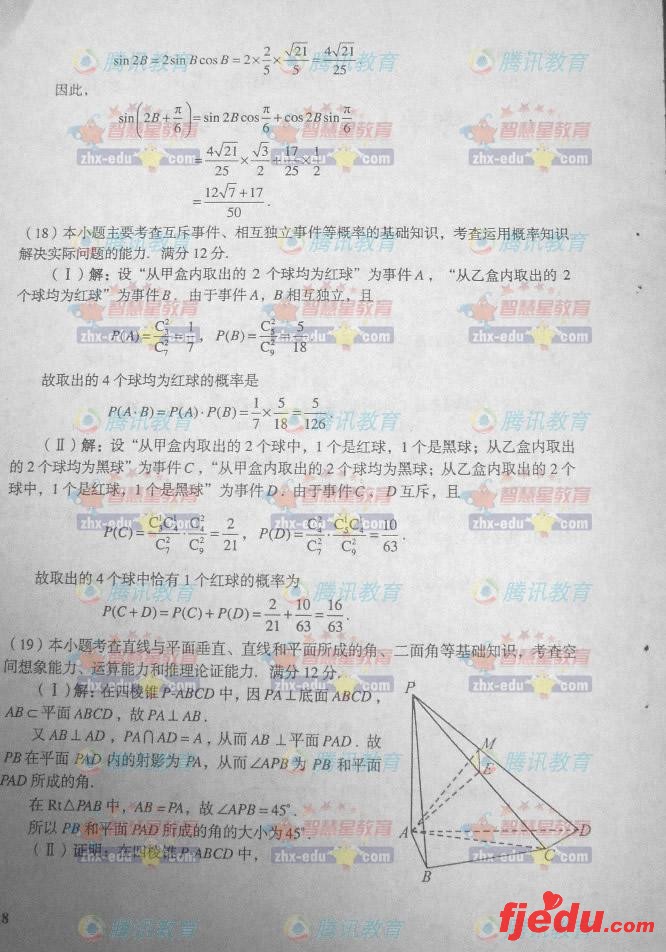 sin 2B = 2sin B cos B = 2×2/5×√21/5 = 4√21/25.
因此，
sin(2B+π/6) = sin 2B cos π/6 + cos 2B sin π/6
= 4√21/25 × √3/2 + 17/25 × 1/2
= (12√7+17)/50.
（18）本小题主要考查互斥事件、相互独立事件等概率的基础知识，考查运用概率知识
解决实际问题的能力. 满分 12 分.
（Ⅰ）解：设“从甲盒内取出的 2 个球均为红球”为事件 A ，“从乙盒内取出的 2
个球均为红球”为事件 B . 由于事件 A，B 相互独立，且
P(A) = C₃²/C₇² = 1/7 ，P(B) = C₅²/C₉² = 5/18
故取出的 4 个球均为红球的概率是
P(A·B) = P(A)·P(B) = 1/7 × 5/18 = 5/126.
（Ⅱ）解：设“从甲盒内取出的 2 个球中，1 个是红球，1 个是黑球；从乙盒内取出
的 2 个球均为黑球”为事件 C ，“从甲盒内取出的 2 个球均为黑球；从乙盒内取出的 2 个
球中，1 个是红球，1 个是黑球”为事件 D . 由于事件 C ，D 互斥，且
P(C) = C₃¹C₄¹/C₇² · C₄²/C₉² = 2/21 ，P(D) = C₄²/C₇² · C₅¹C₄¹/C₉² = 10/63 .
故取出的 4 个球中恰有 1 个红球的概率为
P(C+D) = P(C)+P(D) = 2/21 + 10/63 = 16/63.
（19）本小题考查直线与平面垂直、直线和平面所成的角、二面角等基础知识，考查空
间想象能力、运算能力和推理论证能力. 满分 12 分.
（Ⅰ）解：在四棱锥 P-ABCD 中，因 PA⊥底面 ABCD ，
AB⊂平面 ABCD ，故 PA⊥AB .
又 AB⊥AD ，PA∩AD = A ，从而 AB ⊥平面 PAD . 故
PB 在平面 PAD 内的射影为 PA，从而∠APB 为 PB 和平面
PAD 所成的角.
在 Rt△PAB 中，AB = PA，故∠APB = 45° .
所以 PB 和平面 PAD 所成的角的大小为 45° .
（Ⅱ）证明：在四棱锥 P-ABCD 中，
P
M
E
A
D
C
B
8
腾讯教育
智慧星教育
zhx-edu.com
fjedu.com